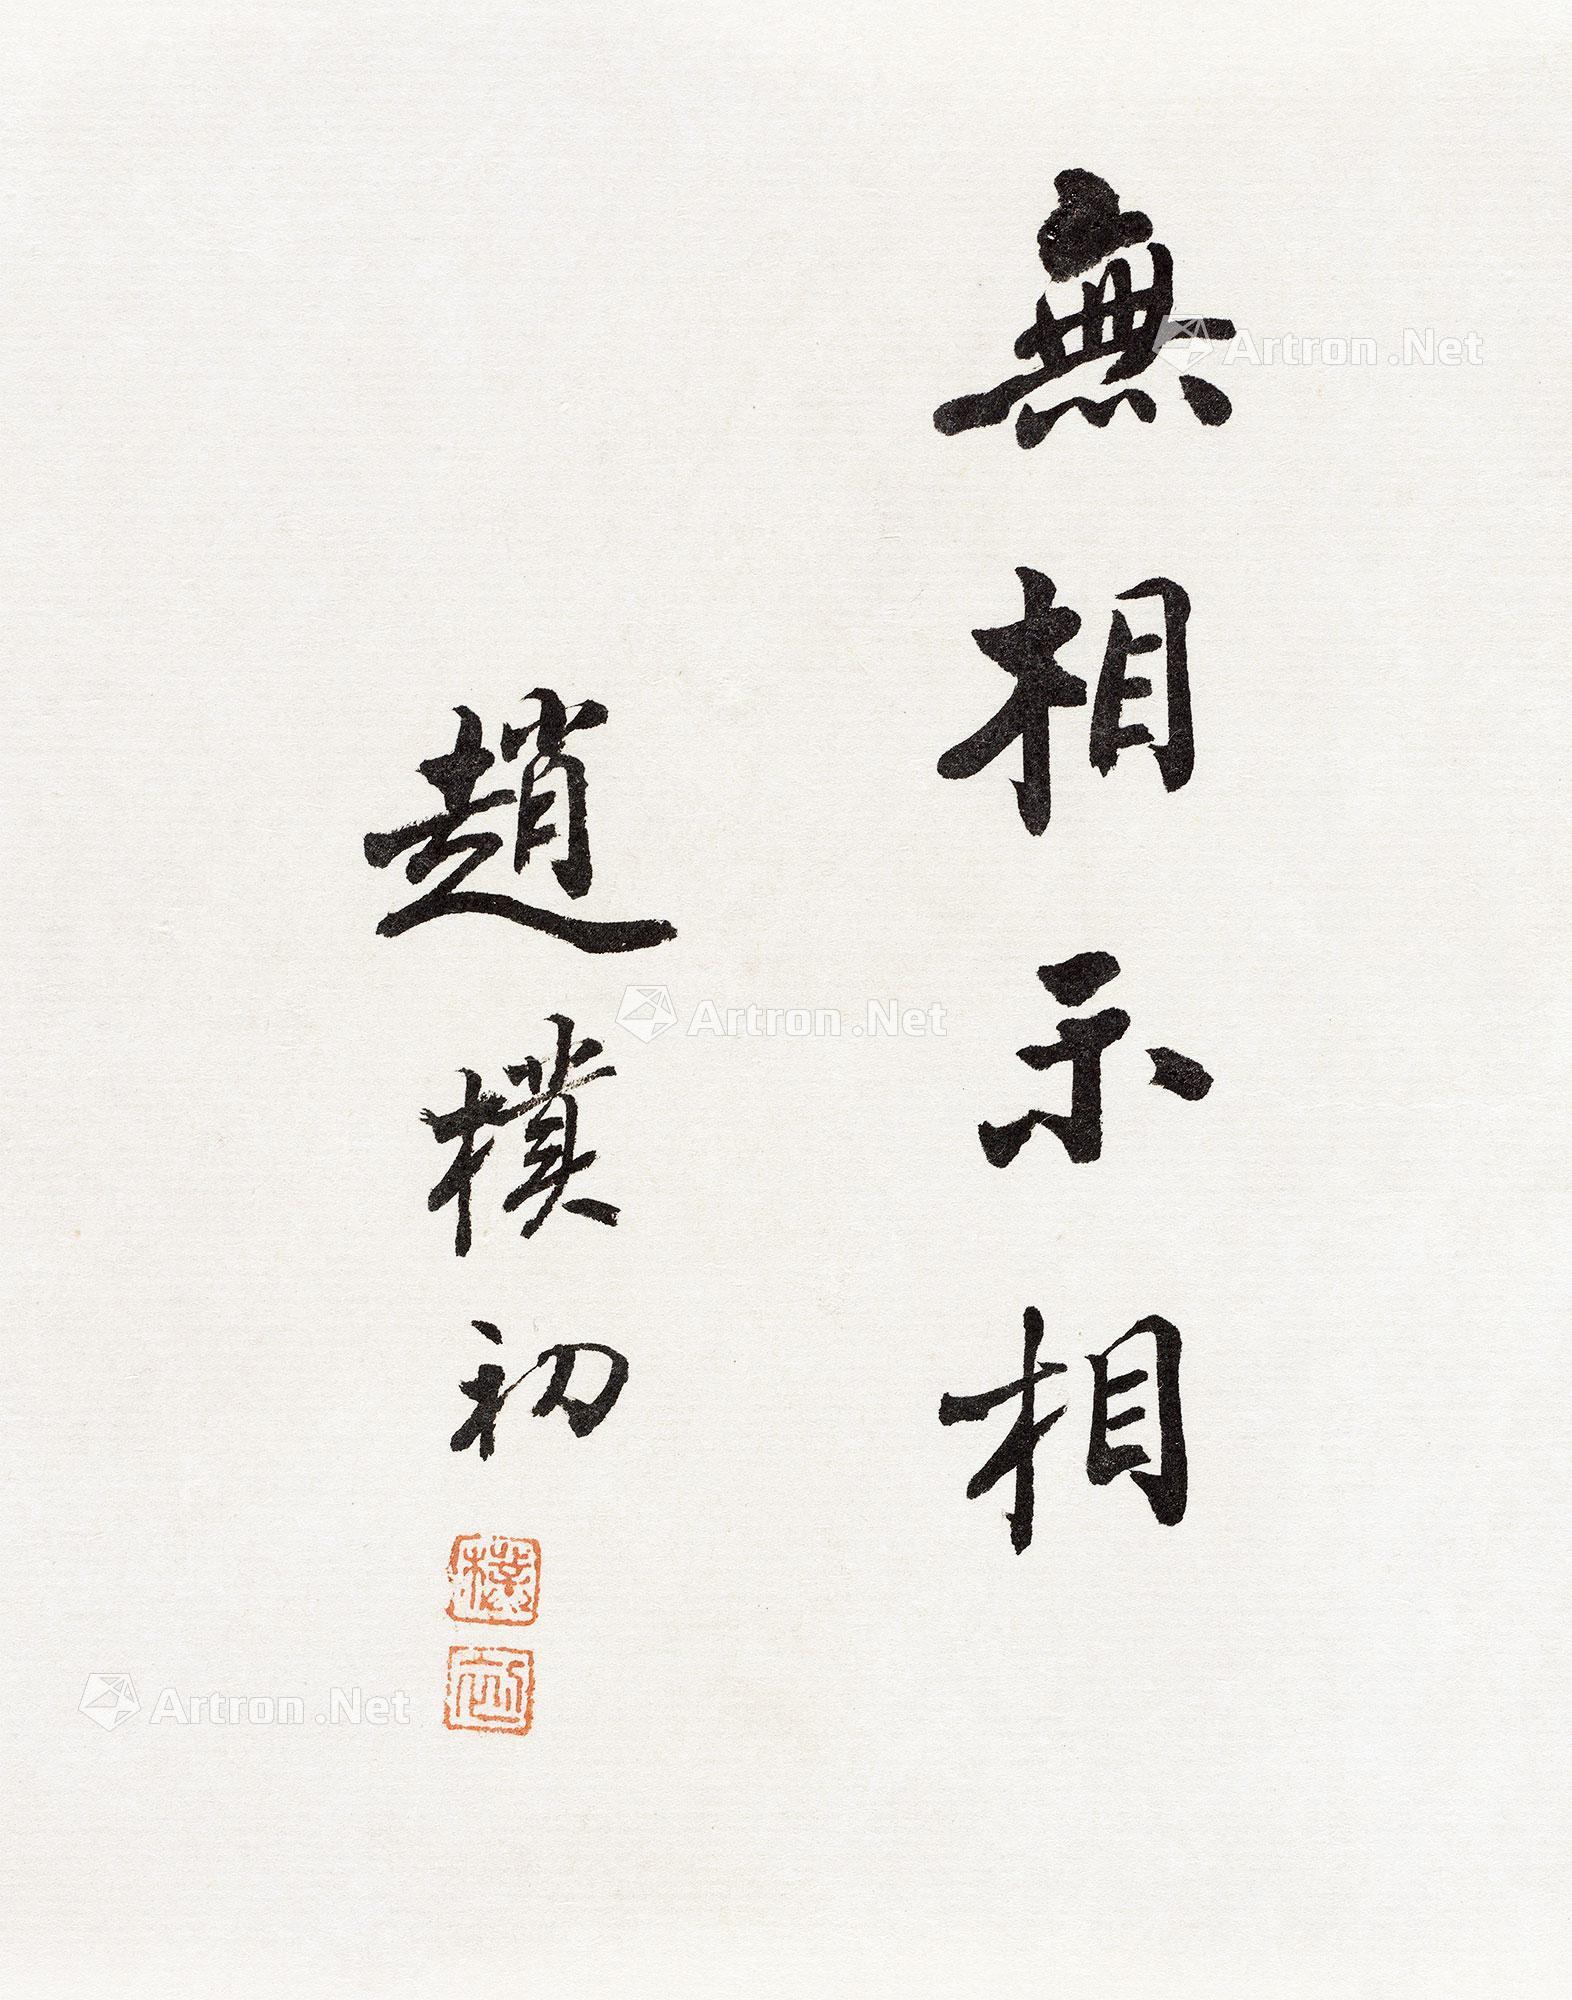 無相示相
趙樸初
樸
初
Artron.Net
Artron.Net
Artron.Net